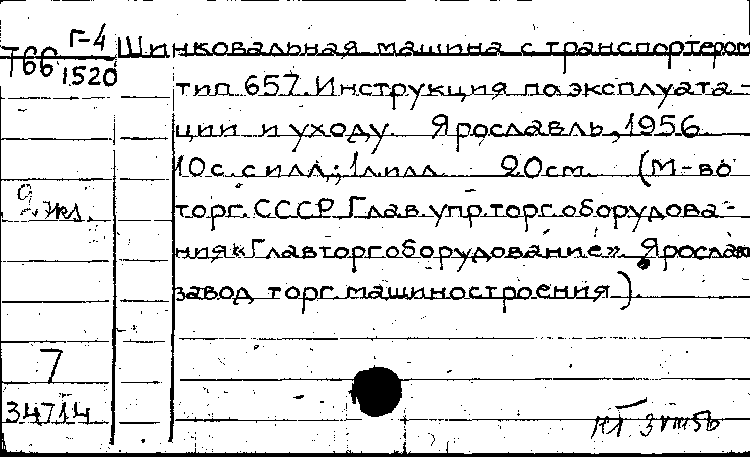 Г-4
766 1520
Шинковальная машина с транспортером
тип 657. Инструкция по эксплуата-
ции и уходу. Ярославль, 1956.
10 с. с илл.; 1 л. илл. 20 см. (М-во
2 экз. торг. СССР. Глав. упр. торг. оборудова-
ния «Главторгоборудование». Ярослав
завод торг. машиностроения).
7
34714